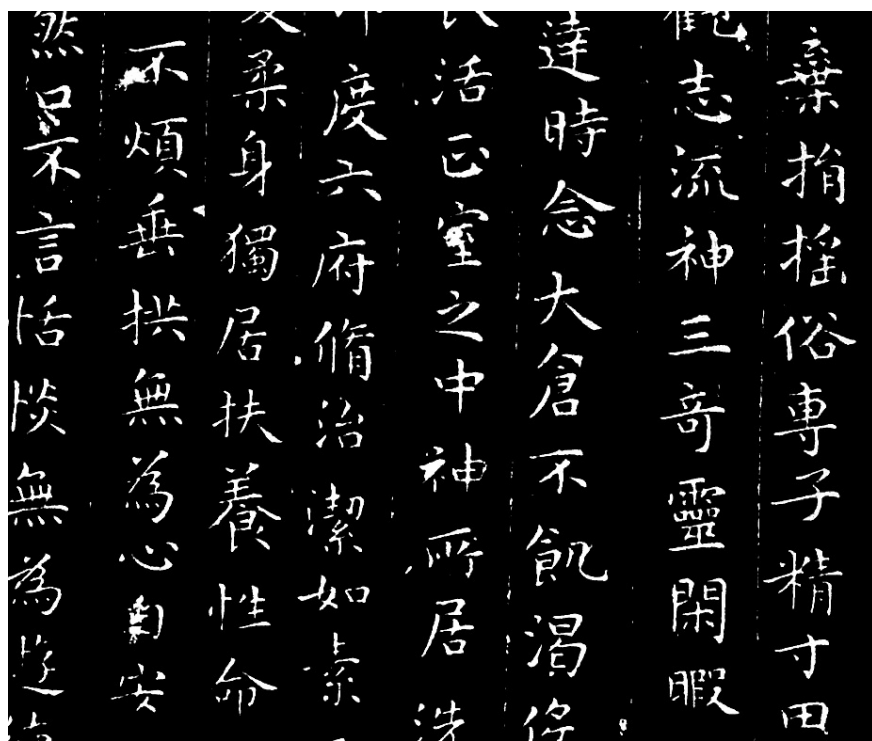 棄捐搖俗專子精寸田
觀志流神三奇靈閑暇
達時念大倉不飢渴
活正室之中神所居洗
度六府脩治潔如素
柔身獨居扶養性命
不煩垂拱無為心自安
然口不言恬惔無為遊